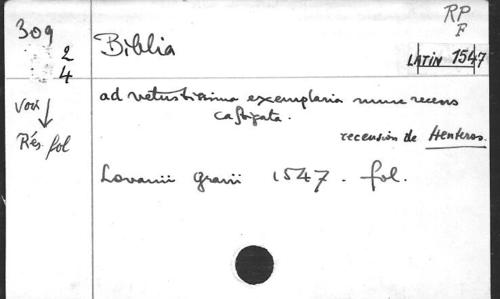 309
2
4
Biblia
RP
F
LATIN 1547
ad vetustissima exemplaria nunc recens
castigata.
Voir
Rés fol
recension de Hentenos.
Lovanii Gravii 1547. fol.